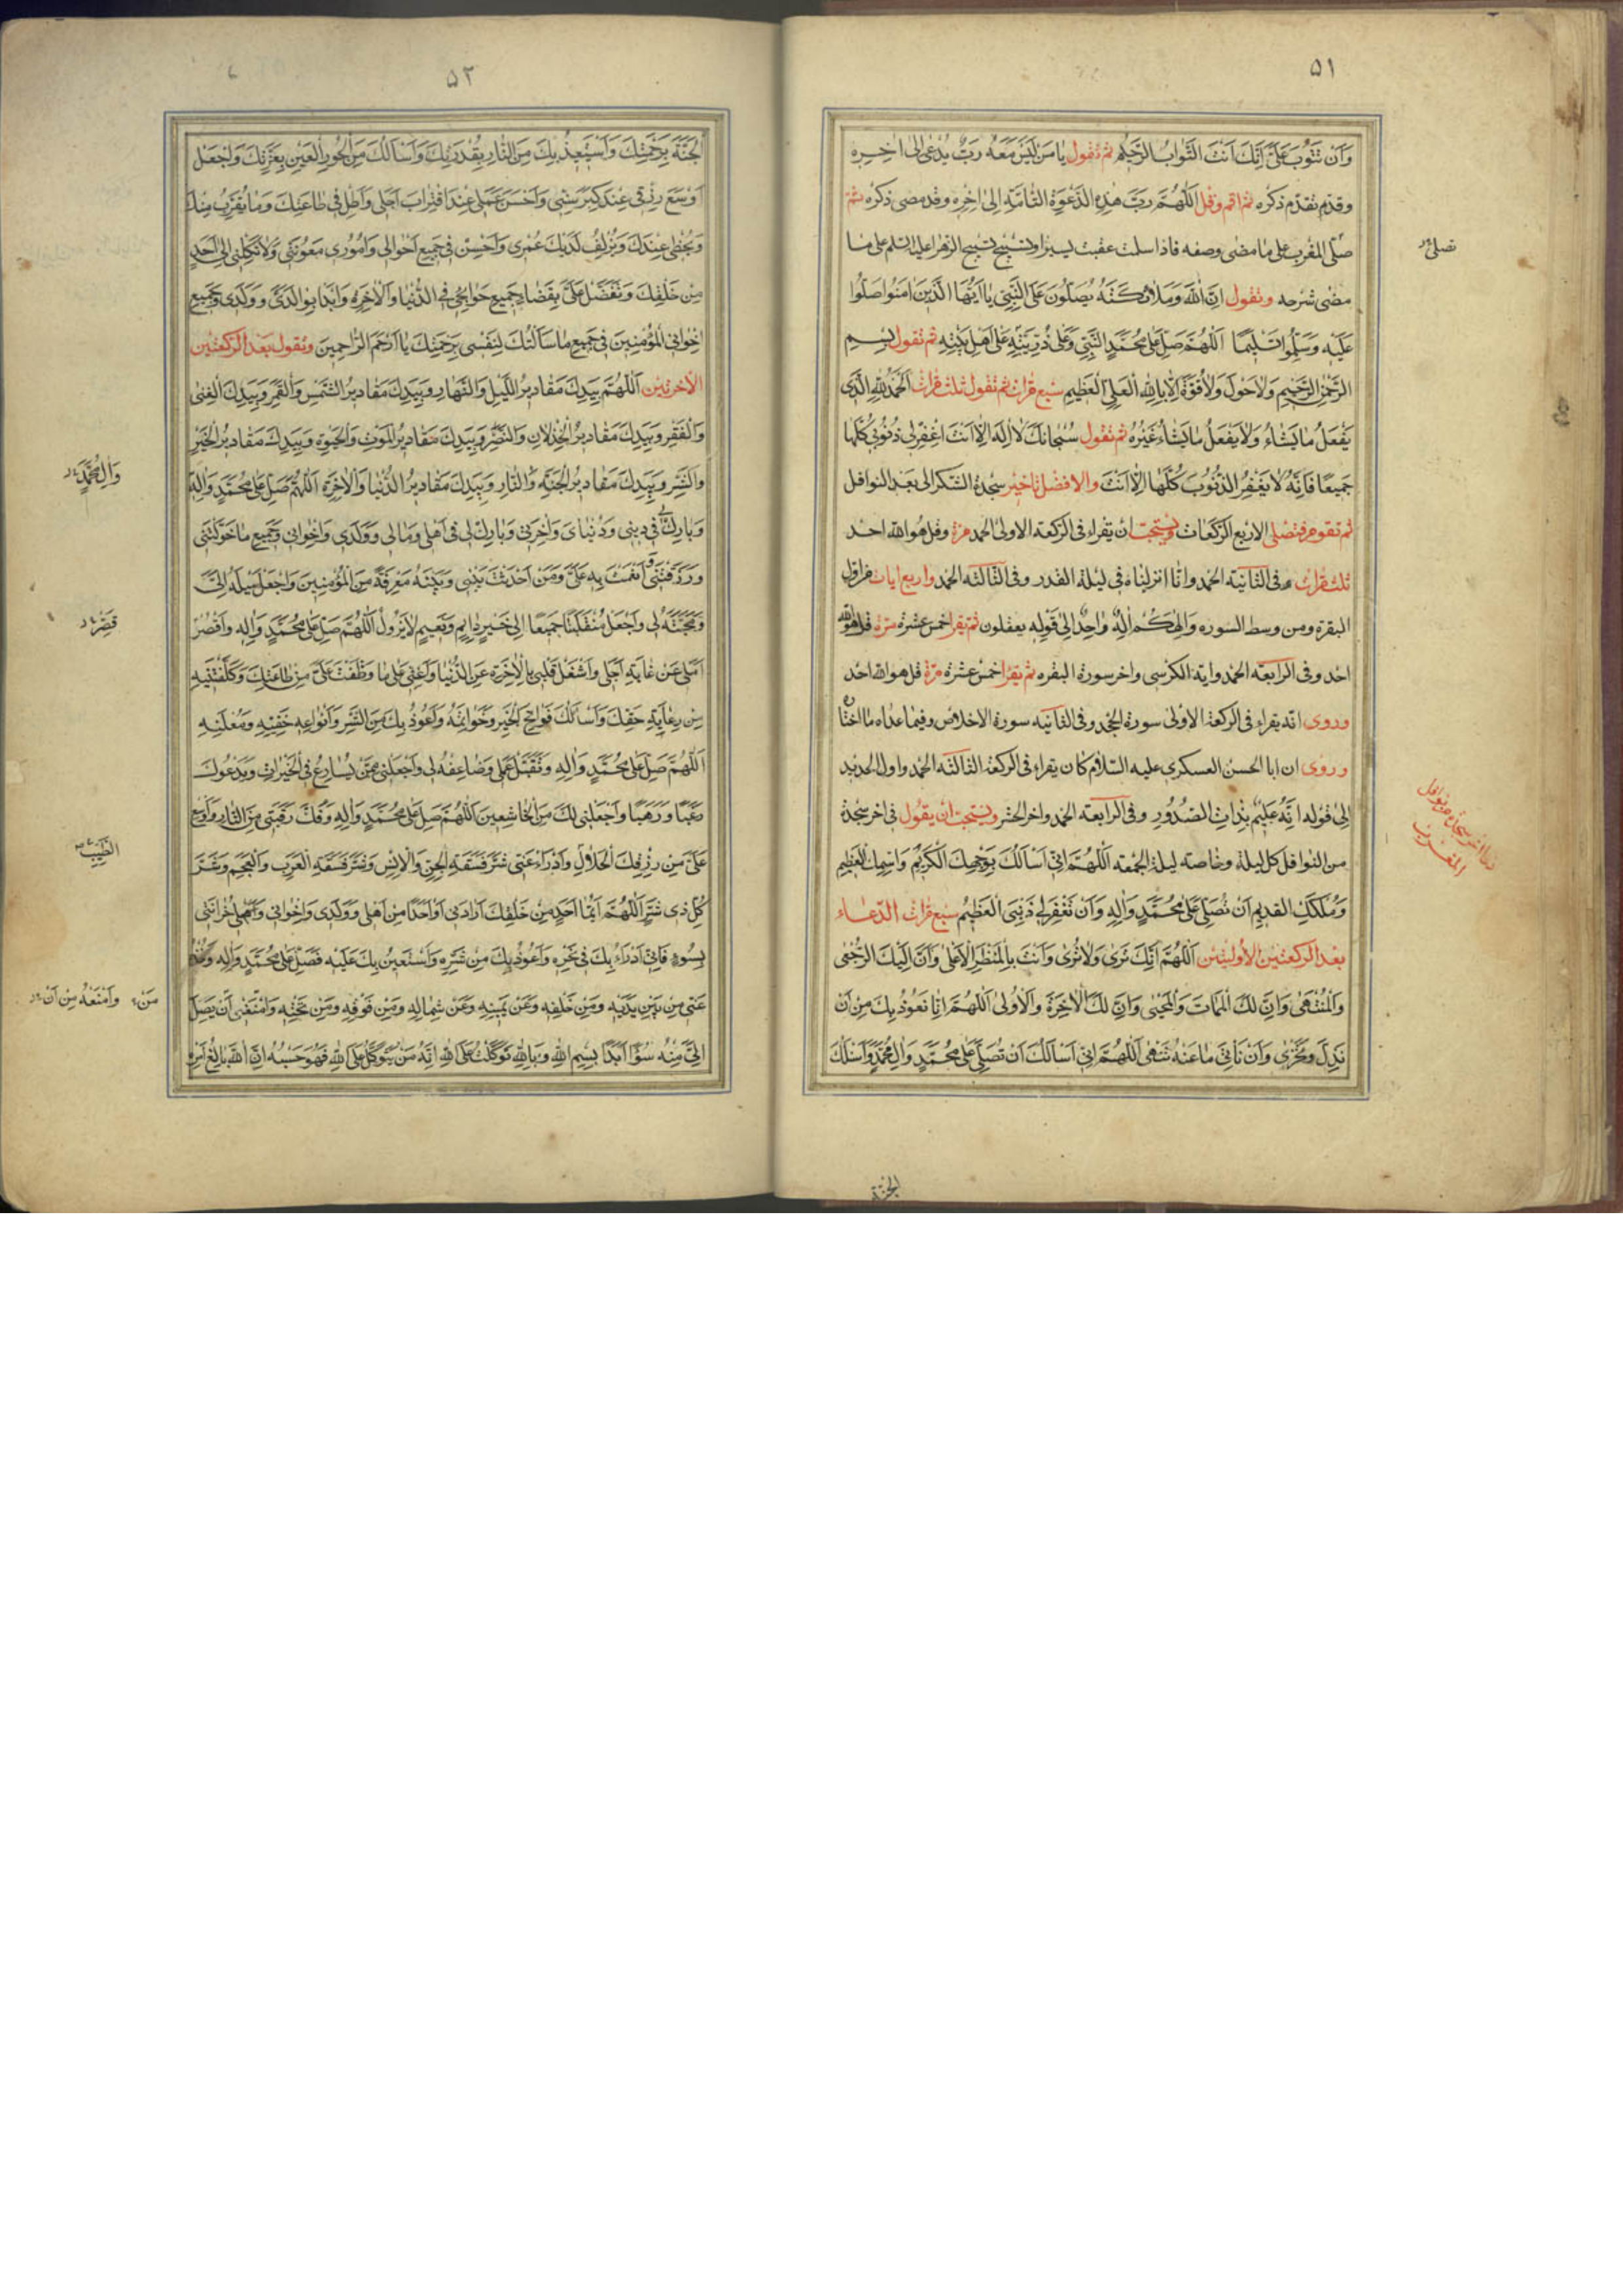 ٥١
وَاَنْ تَتُوبَ عَلَيَّ اِنَّكَ اَنْتَ التَّوَّابُ الرَّحيمُ ثم تقول يا مَن لَيسَ مَعَهُ رَبٌّ يُدعى الى اخِرِه
وقدم تقدم ذكره ثم اقم وقل اَللّهُمَّ رَبَّ هذِهِ الدَّعْوَةِ التّامَّةِ اِلى اخِرِه وقد مضى ذكره ثم
صلّ المغرب على ما مضى وصفه فاذا سلمت عقبت يسيرا وتسبح تسبيح الزهرا عليها السلم على ما
تصلى
مضى شرحه وتقول اِنَّ اللهَ وَمَلائِكَتَهُ يُصَلّونَ عَلَى النَّبِيِّ يا اَيُّهَا الَّذينَ امَنُوا صَلُّوا
عَلَيْهِ وَسَلِّمُوا تَسْليمًا اَللّهُمَّ صَلِّ عَلى مُحَمَّدٍ النَّبِيِّ وَعَلى ذُرِّيَّتِهِ عَلى اَهْلِ بَيْتِهِ ثم تقول بِسْمِ
الرَّحْمنِ الرَّحيمِ وَلا حَوْلَ وَلا قُوَّةَ اِلّا بِاللهِ الْعَلِيِّ الْعَظيمِ سبع مرات ثم تقول ثلث مرات اَلْحَمْدُ لِلّهِ الَّذى
يَفْعَلُ ما يَشاءُ وَلا يَفْعَلُ ما يَشاءُ غَيْرُهُ ثم تقول سُبْحانَكَ لا اِلهَ اِلّا اَنْتَ اغْفِرْ لى ذُنُوبى كُلَّها
جَميعًا فَاِنَّهُ لا يَغْفِرُ الذُّنُوبَ كُلَّها اِلّا اَنْتَ والافضل تاخير سجدة الشكر الى بعد النوافل
ثم تقوم فتصلى الاربع الركعات ويستحب ان يقراء فى الركعة الاولى الحمد مرة وقل هو الله احد
ثلث مرات وفى الثانية الحمد وانا انزلناه فى ليلة القدر وفى الثالثة الحمد واربع ايات من اول
البقرة ومن وسط السوره وَاِلهُكُمْ اِلهٌ واحِدٌ الى قوله يعقلون ثم يقرا خمس عشرة مرة قل هو الله
احد وفى الرابعة الحمد واية الكرسى واخر سورة البقره ثم يقرا خمس عشرة مرة قل هو الله احد
وروى انه يقراء فى الركعة الاولى سورة الجحد وفى الثانية سورة الاخلاص وفيما عداه ما اختار
وروى ان ابا الحسن العسكرى عليه السلام كان يقراء فى الركعة الثالثة الحمد واول الحديد
الى قوله اِنَّهُ عَليمٌ بِذاتِ الصُّدُورِ وفى الرابعة الحمد واخر الحشر ويستحب ان يقول فى اخر سجدة
من النوافل كل ليلة وخاصة ليلة الجمعة اَللّهُمَّ اِنّى اَسْاَلُكَ بِوَجْهِكَ الْكَريمِ وَاسْمِكَ الْعَظيمِ
وَمُلْكِكَ القَديمِ اَنْ تُصَلِّيَ عَلى مُحَمَّدٍ وَآلِهِ وَاَنْ تَغْفِرَ لى ذَنْبِيَ الْعَظيمَ سبع مرات الدعاء
بعد الركعتين الاوليتين اَللّهُمَّ اِنَّكَ تَرى وَلا تُرى وَاَنْتَ بِالْمَنْظَرِ الْاَعْلى وَاَنَّ اِلَيْكَ الرُّجْعى
وَالْمُنْتَهى وَاِنَّ لَكَ الْمَماتَ وَالْمَحْيى وَاِنَّ لَكَ الْاخِرَةَ وَالْاُولى اَللّهُمَّ اِنّا نَعُوذُ بِكَ مِنْ اَنْ
نَذِلَّ وَنَخْزى وَاَنْ نَأْتِيَ ما عَنْهُ تَنْهى اَللّهُمَّ اِنّى اَسْاَلُكَ اَنْ تُصَلِّيَ عَلى مُحَمَّدٍ وَالِ مُحَمَّدٍ وَاَسْئَلُكَ
الجنة
٥٢
الْجَنَّةَ بِرَحْمَتِكَ وَاَسْتَعيذُ بِكَ مِنَ النّارِ بِقُدْرَتِكَ وَاَسْاَلُكَ مِنَ الْحُورِ الْعينِ بِعِزَّتِكَ وَاجْعَلْ
اَوْسَعَ رِزْقى عِنْدَ كِبَرِ سِنّى وَاَحْسَنَ عَمَلى عِنْدَ اقْتِرابِ اَجَلى وَاَطِلْ فى طاعَتِكَ وَما يُقَرِّبُ مِنْكَ
وَيُحْظى عِنْدَكَ وَيُزْلِفُ لَدَيْكَ عُمْرى وَاَحْسِنْ فى جَميعِ اَحْوالى وَاُمُورى مَعُونَتى وَلا تَكِلْنى اِلى اَحَدٍ
مِنْ خَلْقِكَ وَتَفَضَّلْ عَلَيَّ بِقَضاءِ جَميعِ حَوائِجى فِى الدُّنْيا وَالْاخِرَةِ وَابْدَا بِوالِدَيَّ وَوَلَدى وَجَميعِ
اِخْوانِى الْمُؤْمِنينَ فى جَميعِ ما سَاَلْتُكَ لِنَفْسى بِرَحْمَتِكَ يا اَرْحَمَ الرّاحِمينَ وتقول بعد الركعتين
الاخرتين اَللّهُمَّ بِيَدِكَ مَقاديرُ اللَّيْلِ وَالنَّهارِ وَبِيَدِكَ مَقاديرُ الشَّمْسِ وَالْقَمَرِ وَبِيَدِكَ الْغِنى
وَالْفَقْرِ وَبِيَدِكَ مَقاديرُ الْخِذْلانِ وَالنَّصْرِ وَبِيَدِكَ مَقاديرُ الْمَوْتِ وَالْحَيوةِ وَبِيَدِكَ مَقاديرُ الْخَيْرِ
وَالشَّرِّ وَبِيَدِكَ مَقاديرُ الْجَنَّةِ وَالنّارِ وَبِيَدِكَ مَقاديرُ الدُّنْيا وَالْاخِرَةِ اَللّهُمَّ صَلِّ عَلى مُحَمَّدٍ وَالِهِ
وَالِ مُحَمَّدٍ
وَبارِكْ فى دينى وَدُنْياىَ وَاخِرَتى وَبارِكْ لى فى اَهْلى وَمالى وَوَلَدى وَاِخْوانى وَجَميعِ ما خَوَّلْتَنى
وَرَزَقْتَنى وَاَنْعَمْتَ بِهِ عَلَيَّ وَمَنْ اَحْدَثْتَ بَيْنى وَبَيْنَهُ مَعْرِفَةً مِنَ الْمُؤْمِنينَ وَاجْعَلْ مَيْلَهُ اِلَيَّ
وَمَحَبَّتَهُ لى وَاجْعَلْ مُنْقَلَبَنا جَميعًا اِلى خَيْرٍ دائِمٍ وَنَعيمٍ لا يَزُولُ اَللّهُمَّ صَلِّ عَلى مُحَمَّدٍ وَالِهِ وَاقْصُرْ
قَصِّرْ
اَمَلى عَنْ غايَةِ اَجَلى وَاشْغَلْ قَلْبى بِالْاخِرَةِ عَنِ الدُّنْيا وَاَعِنّى عَلى ما وَظَّفْتَ عَلَيَّ مِنْ طاعَتِكَ وَكَلَّفْتَنيهِ
مِنْ رِعايَةِ حَقِّكَ وَاَسْاَلُكَ فَواتِحَ الْخَيْرِ وَخَواتِمَهُ وَاَعُوذُ بِكَ مِنَ الشَّرِّ وَاَنْواعِهِ خَفِيِّهِ وَمُعْلَنِهِ
اَللّهُمَّ صَلِّ عَلى مُحَمَّدٍ وَالِهِ وَتَقَبَّلْ عَمَلى وَضاعِفْهُ لى وَاجْعَلْنى مِمَّنْ يُسارِعُ فِى الْخَيْراتِ وَيَدْعُوكَ
رَغَبًا وَرَهَبًا وَاجْعَلْنى لَكَ مِنَ الْخاشِعينَ اَللّهُمَّ صَلِّ عَلى مُحَمَّدٍ وَالِهِ وَفُكَّ رَقَبَتى مِنَ النّارِ وَاَوْسِعْ
عَلَيَّ مِنْ رِزْقِكَ الْحَلالِ وَادْرَاْ عَنّى شَرَّ فَسَقَةِ الْجِنِّ وَالْاِنْسِ وَشَرَّ فَسَقَةِ الْعَرَبِ وَالْعَجَمِ وَشَرَّ
الطَّيِّبِ
كُلِّ ذى شَرٍّ اَللّهُمَّ اَيُّما اَحَدٍ مِنْ خَلْقِكَ اَرادَنى اَوْ اَحَدًا مِنْ اَهْلى وَوَلَدى وَاِخْوانى وَاَهْلِ حُزانَتى
بِسُوءٍ فَاِنّى اَدْرَاُ بِكَ فى نَحْرِهِ وَاَعُوذُ بِكَ مِنْ شَرِّهِ وَاَسْتَعينُ بِكَ عَلَيْهِ فَصَلِّ عَلى مُحَمَّدٍ وَالِهِ وَخُذْهُ
عَنّى مِنْ بَيْنِ يَدَيْهِ وَمِنْ خَلْفِهِ وَعَنْ يَمينِهِ وَعَنْ شِمالِهِ وَمِنْ فَوْقِهِ وَمِنْ تَحْتِهِ وَامْنَعْنى اَنْ يَصِلَ
مِنْ وَامْنَعْهُ مِنْ اَنْ
اِلَيَّ مِنْهُ سُوءٌ اَبَدًا بِسْمِ اللهِ وَبِاللهِ تَوَكَّلْتُ عَلَى اللهِ اِنَّهُ مَنْ يَتَوَكَّلْ عَلَى اللهِ فَهُوَ حَسْبُهُ اِنَّ اللهَ بالِغُ اَمْرِهِ